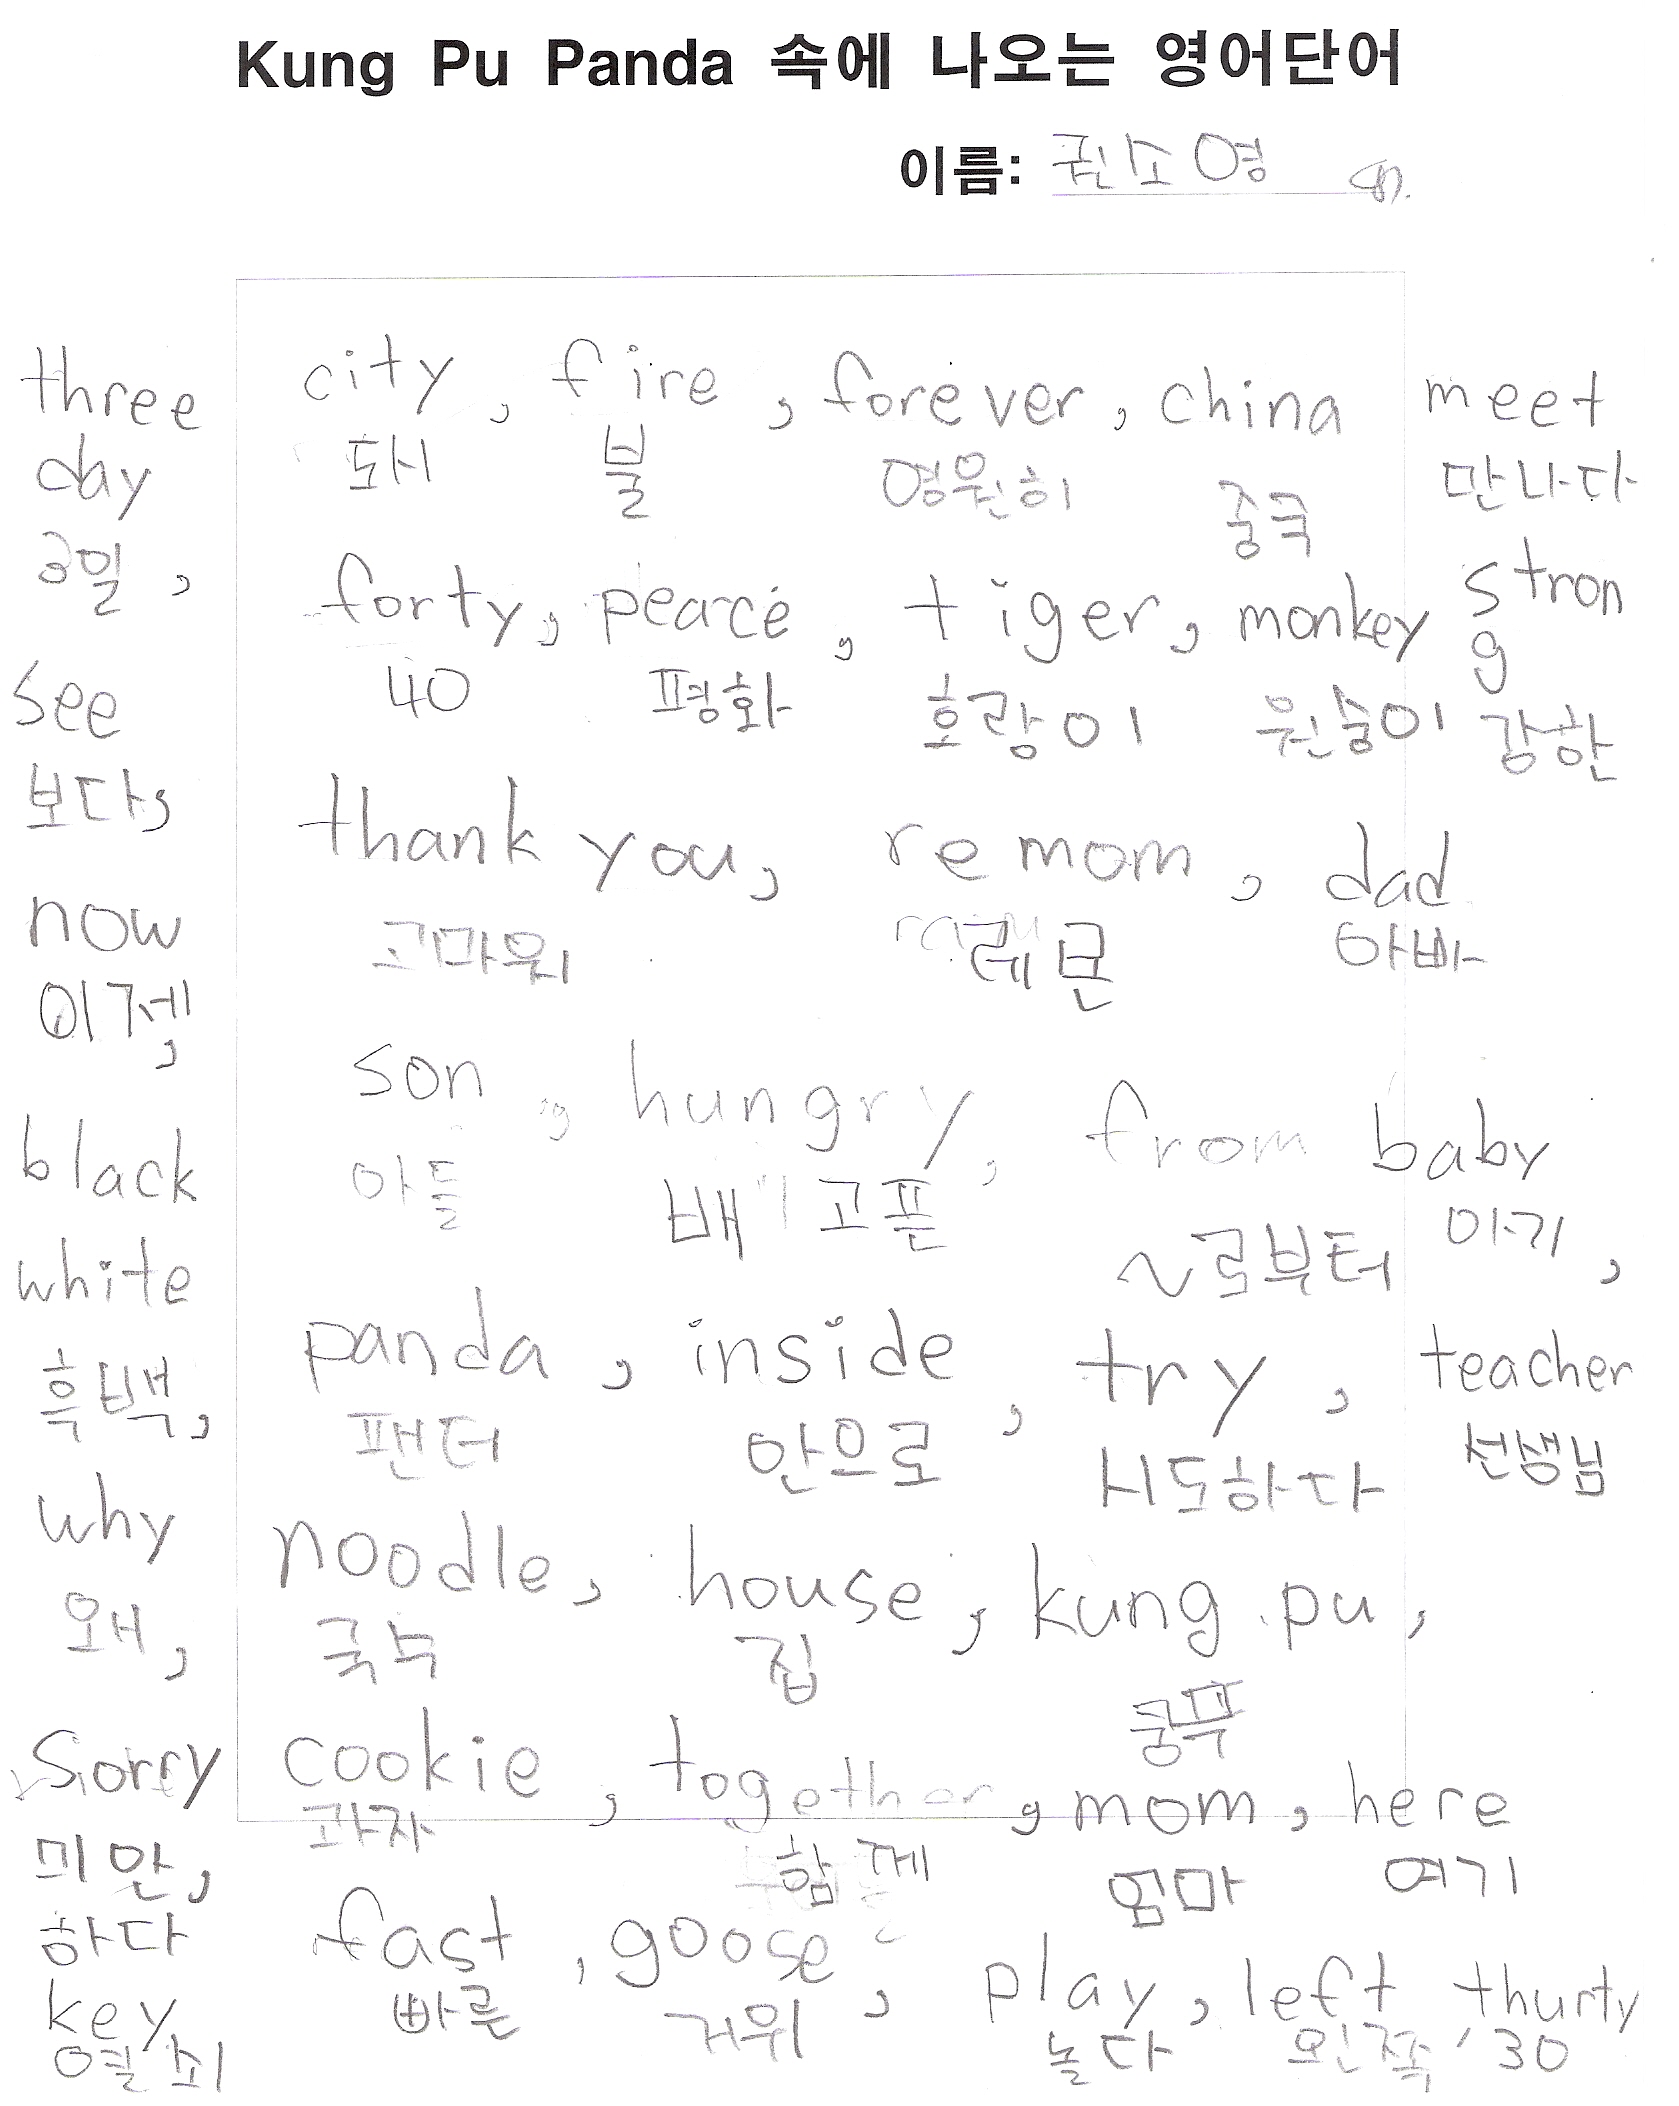 Kung Pu Panda 속에 나오는 영어단어
이름: 권소영
three
day
3일,
see
보다,
now
이제,
black
white
흑백,
why
왜,
Sorry
미안,
하다
key
열쇠
city, fire, forever, china
도시 불 영원히 중국
forty, pearce, tiger, monkey
40 평화 호랑이 원숭이
thank you, remom, dad
고마워 레몬 아빠
son, hungry, from
아들 배고픈 ~로부터
panda, inside, try,
팬더 안으로 시도하다
noodle, house, kung pu,
국수 집 쿵푸
cookie, together, mom, here
과자 함께 엄마 여기
fast, goose, play, left, thurty
빠른 거위 놀다 왼쪽 30
meet
만나다
stron
g
강한
baby
아기,
teacher
선생님